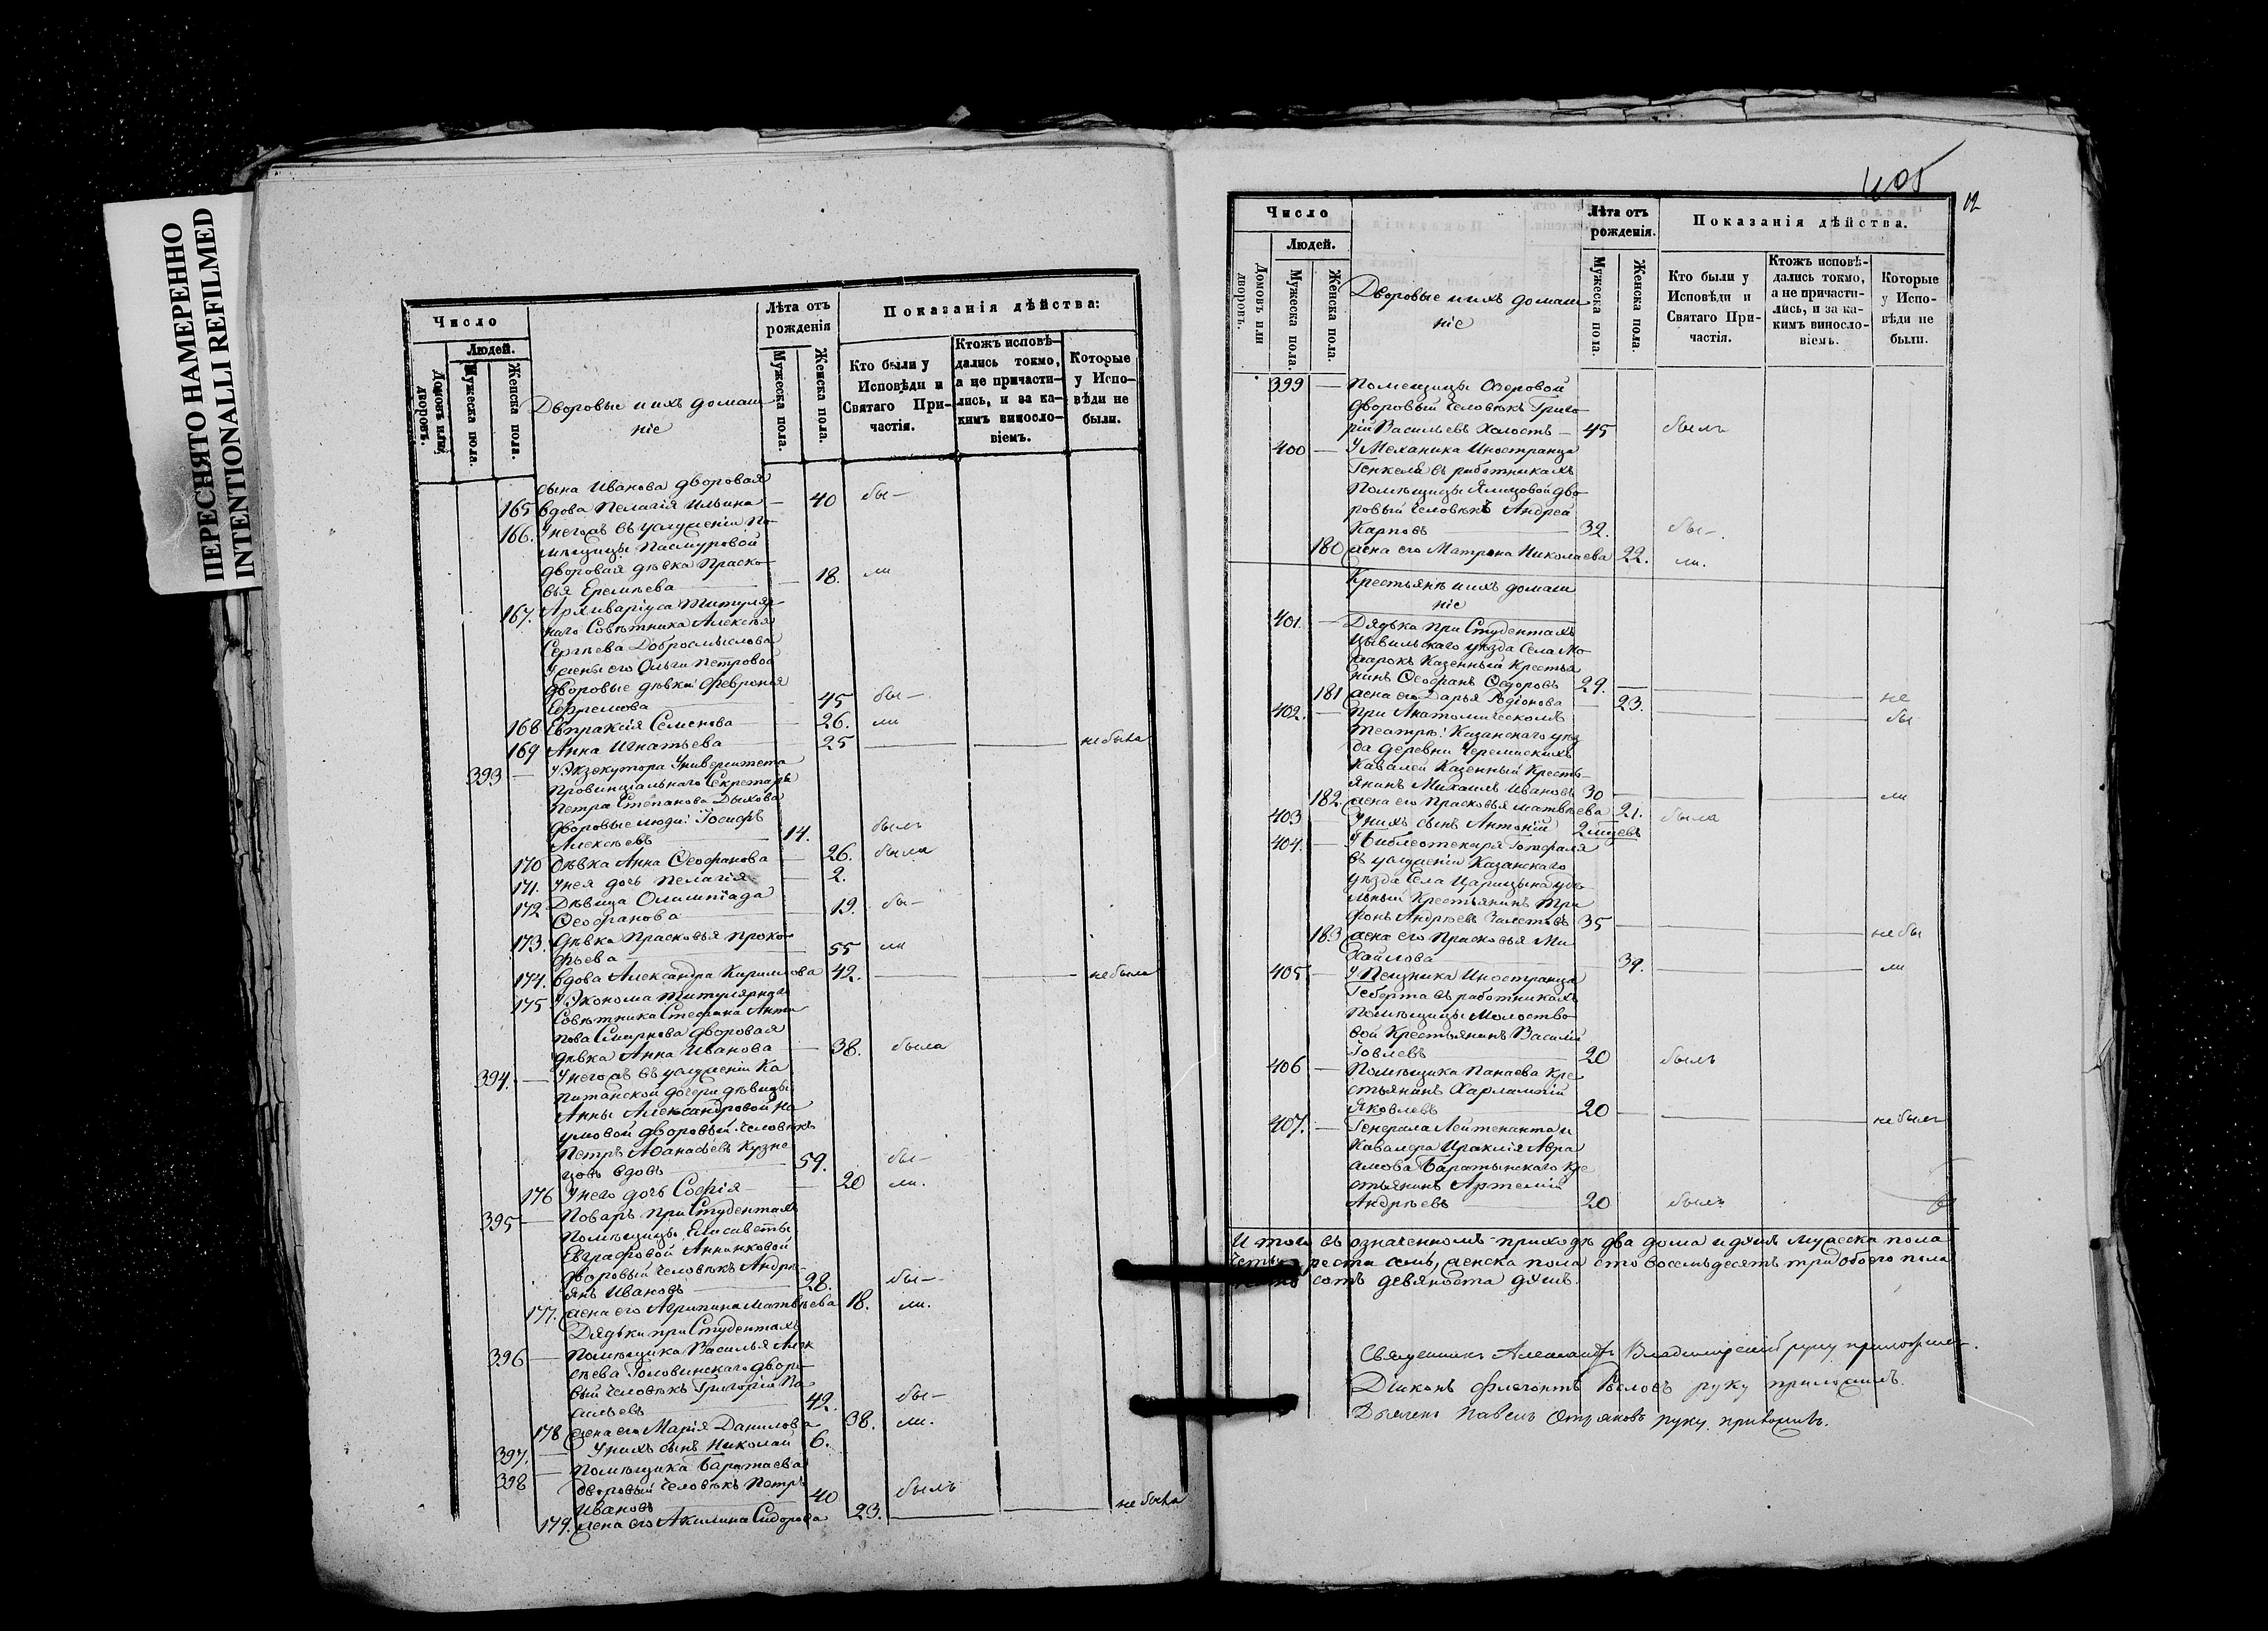 ПЕРЕСНЯТО НАМЕРЕННО
INTENTIONALLI REFILMED
Число
Людей.
Домовъ или дворовъ.
Мужеска пола.
Женска пола.
Дворовые и ихъ домаш
ніе
Лѣта отъ рожденія
Мужеска пола.
Женска пола.
Показанія дѣйства:
Кто были у Исповѣди и Святаго Причастія.
Ктожъ исповѣдались токмо, а не причастились, и за какимъ винословіемъ.
Которые у Исповѣди не были.
сына Иванова дворовая
165 вдова Пелагія Ильина — 40 бы—
166. У него жъ въ услуженіи По
мѣщицы Пасмуровой
дворовая дѣвка Праско
вья Еремѣева — 18. ли
167. Архиваріуса Титуляр
наго Совѣтника Алексѣя
Сергѣева Добросмыслова
Жены его Ольги Петровой
дворовые дѣвки: Февронья
Ефремова — 45 бы—
168 Евпраксія Семенова — 26. ли
169 Анна Игнатьева 25 — не была
393 — У Экзекутора Университета
Провинціальнаго Секретаря
Петра Степанова Дыхова
дворовые люди: Іосифъ
Алексѣевъ 14. былъ
170 Дѣвка Анна Ѳеофанова — 26. была
171. У нея дочь Пелагія — 2.
172 Дѣвица Олимпіада
Ѳеофанова 19. бы—
173. Дѣвка Прасковья Проко
фьева — 55 ли
174. Вдова Александра Кирилова 42. — не была
175 У Эконома Титулярнаго
Совѣтника Стефана Анти
пова Смирнова дворовая
дѣвка Анна Иванова — 38. была
394. — У него жъ въ услуженіи Ка
питанской дочери дѣвицы
Анны Александровой На
умовой дворовый человѣкъ
Петръ Аѳанасьевъ Кузне
цовъ вдовъ — 59. бы—
176 У него дочь Софія — 20 ли.
395 — Поваръ при Студентахъ
Помѣщицы Елисаветы
Евграфовой Анненковой
дворовый человѣкъ Андре
янъ Ивановъ — 28. бы—
177. жена его Агрипина Матвѣева 18. ли.
Дядьки при Студентахъ
396 — Помѣщика Василья Алек
сѣева Головинскаго дворо
вый человѣкъ Григорій Ва
сильевъ 42. бы—
178 жена его Марія Данилова 38. ли.
397. — У нихъ сынъ Николай 6.
398 — Помѣщика Баратаева
дворовый человѣкъ Петръ
Ивановъ 40 былъ
179. жена его Акилина Сидорова 23. — не была
405
12
Число
Людей.
Домовъ или дворовъ.
Мужеска пола.
Женска пола.
Дворовые и ихъ домаш
ніе
Лѣта отъ рожденія.
Мужеска пола.
Женска пола.
Показанія дѣйства.
Кто были у Исповѣди и Святаго Причастія.
Ктожъ исповѣдались токмо, а не причастились, и за какимъ винословіемъ.
Которые у Исповѣди не были.
399 — Помещицы Озеровой
дворовый человѣкъ Григо
рій Васильевъ Холостъ — 45 былъ
400 — У Механика Иностранца
Генкеля въ работникахъ
Помѣщицы Ялицовой дво
ровый человѣкъ Андрей
Карповъ 32. бы—.
180 жена его Матрона Николаева 22. ли.
Крестьянѣ и ихъ домаш
ніе
401. — Дядька при Студентахъ
Цывильскаго уѣзда села Мо
шарокъ Казенный Крестья
нинъ Ѳеофанъ Ѳедоровъ 29. —
181 жена его Дарья Родіонова — 23. — не
402. — При Анатомическомъ — бы
театрѣ: Казанскаго уѣз
да деревни Черемискихъ
Кавалей Казенный Кресть
янинъ Михаилъ Ивановъ 30 —
182. жена его Прасковья Матвѣева 21. — ли
403 — У нихъ сынъ Антоній 2 мцевъ была
404. — У Библіотекаря Готвальда
въ услуженіи Казанскаго
уѣзда Села Царицына удѣ
льный Крестьянинъ Три
фонъ Андрѣевъ 35 —
183 жена его Прасковья Ми — не бы
хайлова 39. — ли
405 — У Пещника Иностранца
Геберта въ работникахъ
Помѣщицы Молоство
вой Крестьянинъ Василій
Іовлевъ 20 былъ
406 — Помѣщика Панаева Кре
стьянинъ Харлампій
Яковлевъ 20 —
407. — Генерала Лейтенанта и — не былъ
Кавалера Ираклія Авра
амова Баратынскаго Кре
стьянинъ Артемій
Андрѣевъ 20 былъ
Итого въ означенномъ приходѣ два дома и душъ мужеска пола
четыреста семь, женска пола сто восемьдесятъ три обоего пола
сотъ девяноста душъ.
Священникъ Александръ Владимірскій руку приложилъ.
Діаконъ Флегонтъ Бѣловъ руку приложилъ.
Дьячекъ Павелъ руку приложилъ.